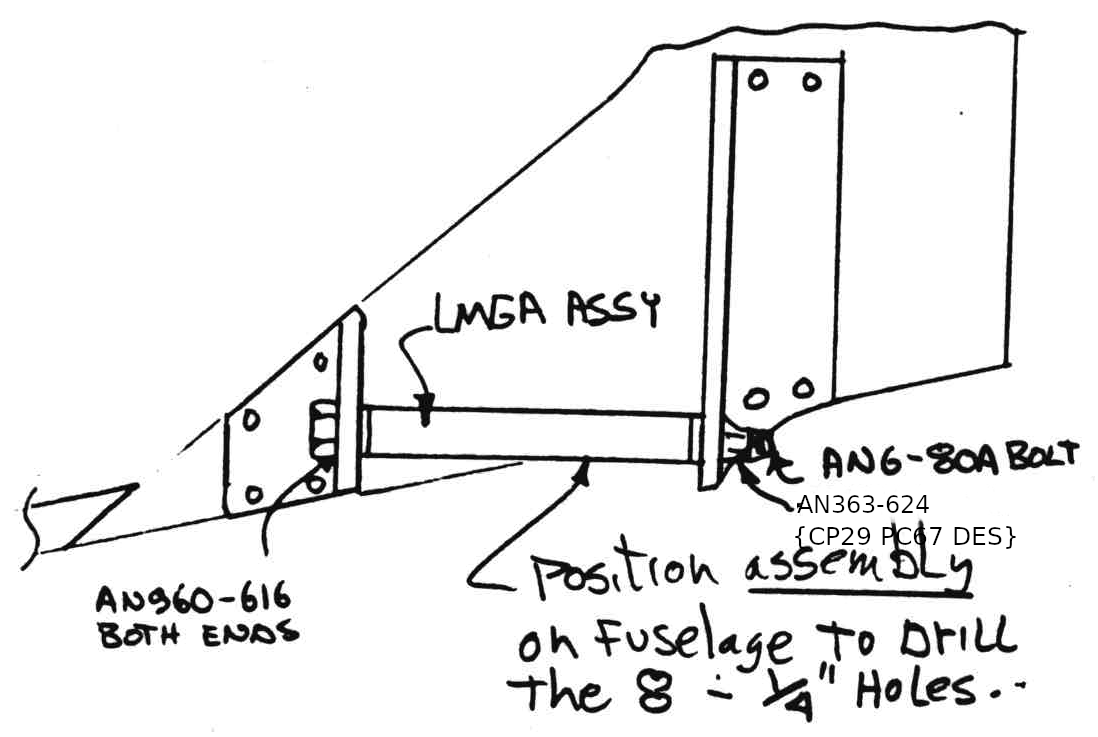 LMGA ASSY
AN6-80A BOLT
AN363-624
{CP29 PC67 DES}
AN960-616
BOTH ENDS
Position assembly
on Fuselage To Drill
The 8 - 1/4" Holes.